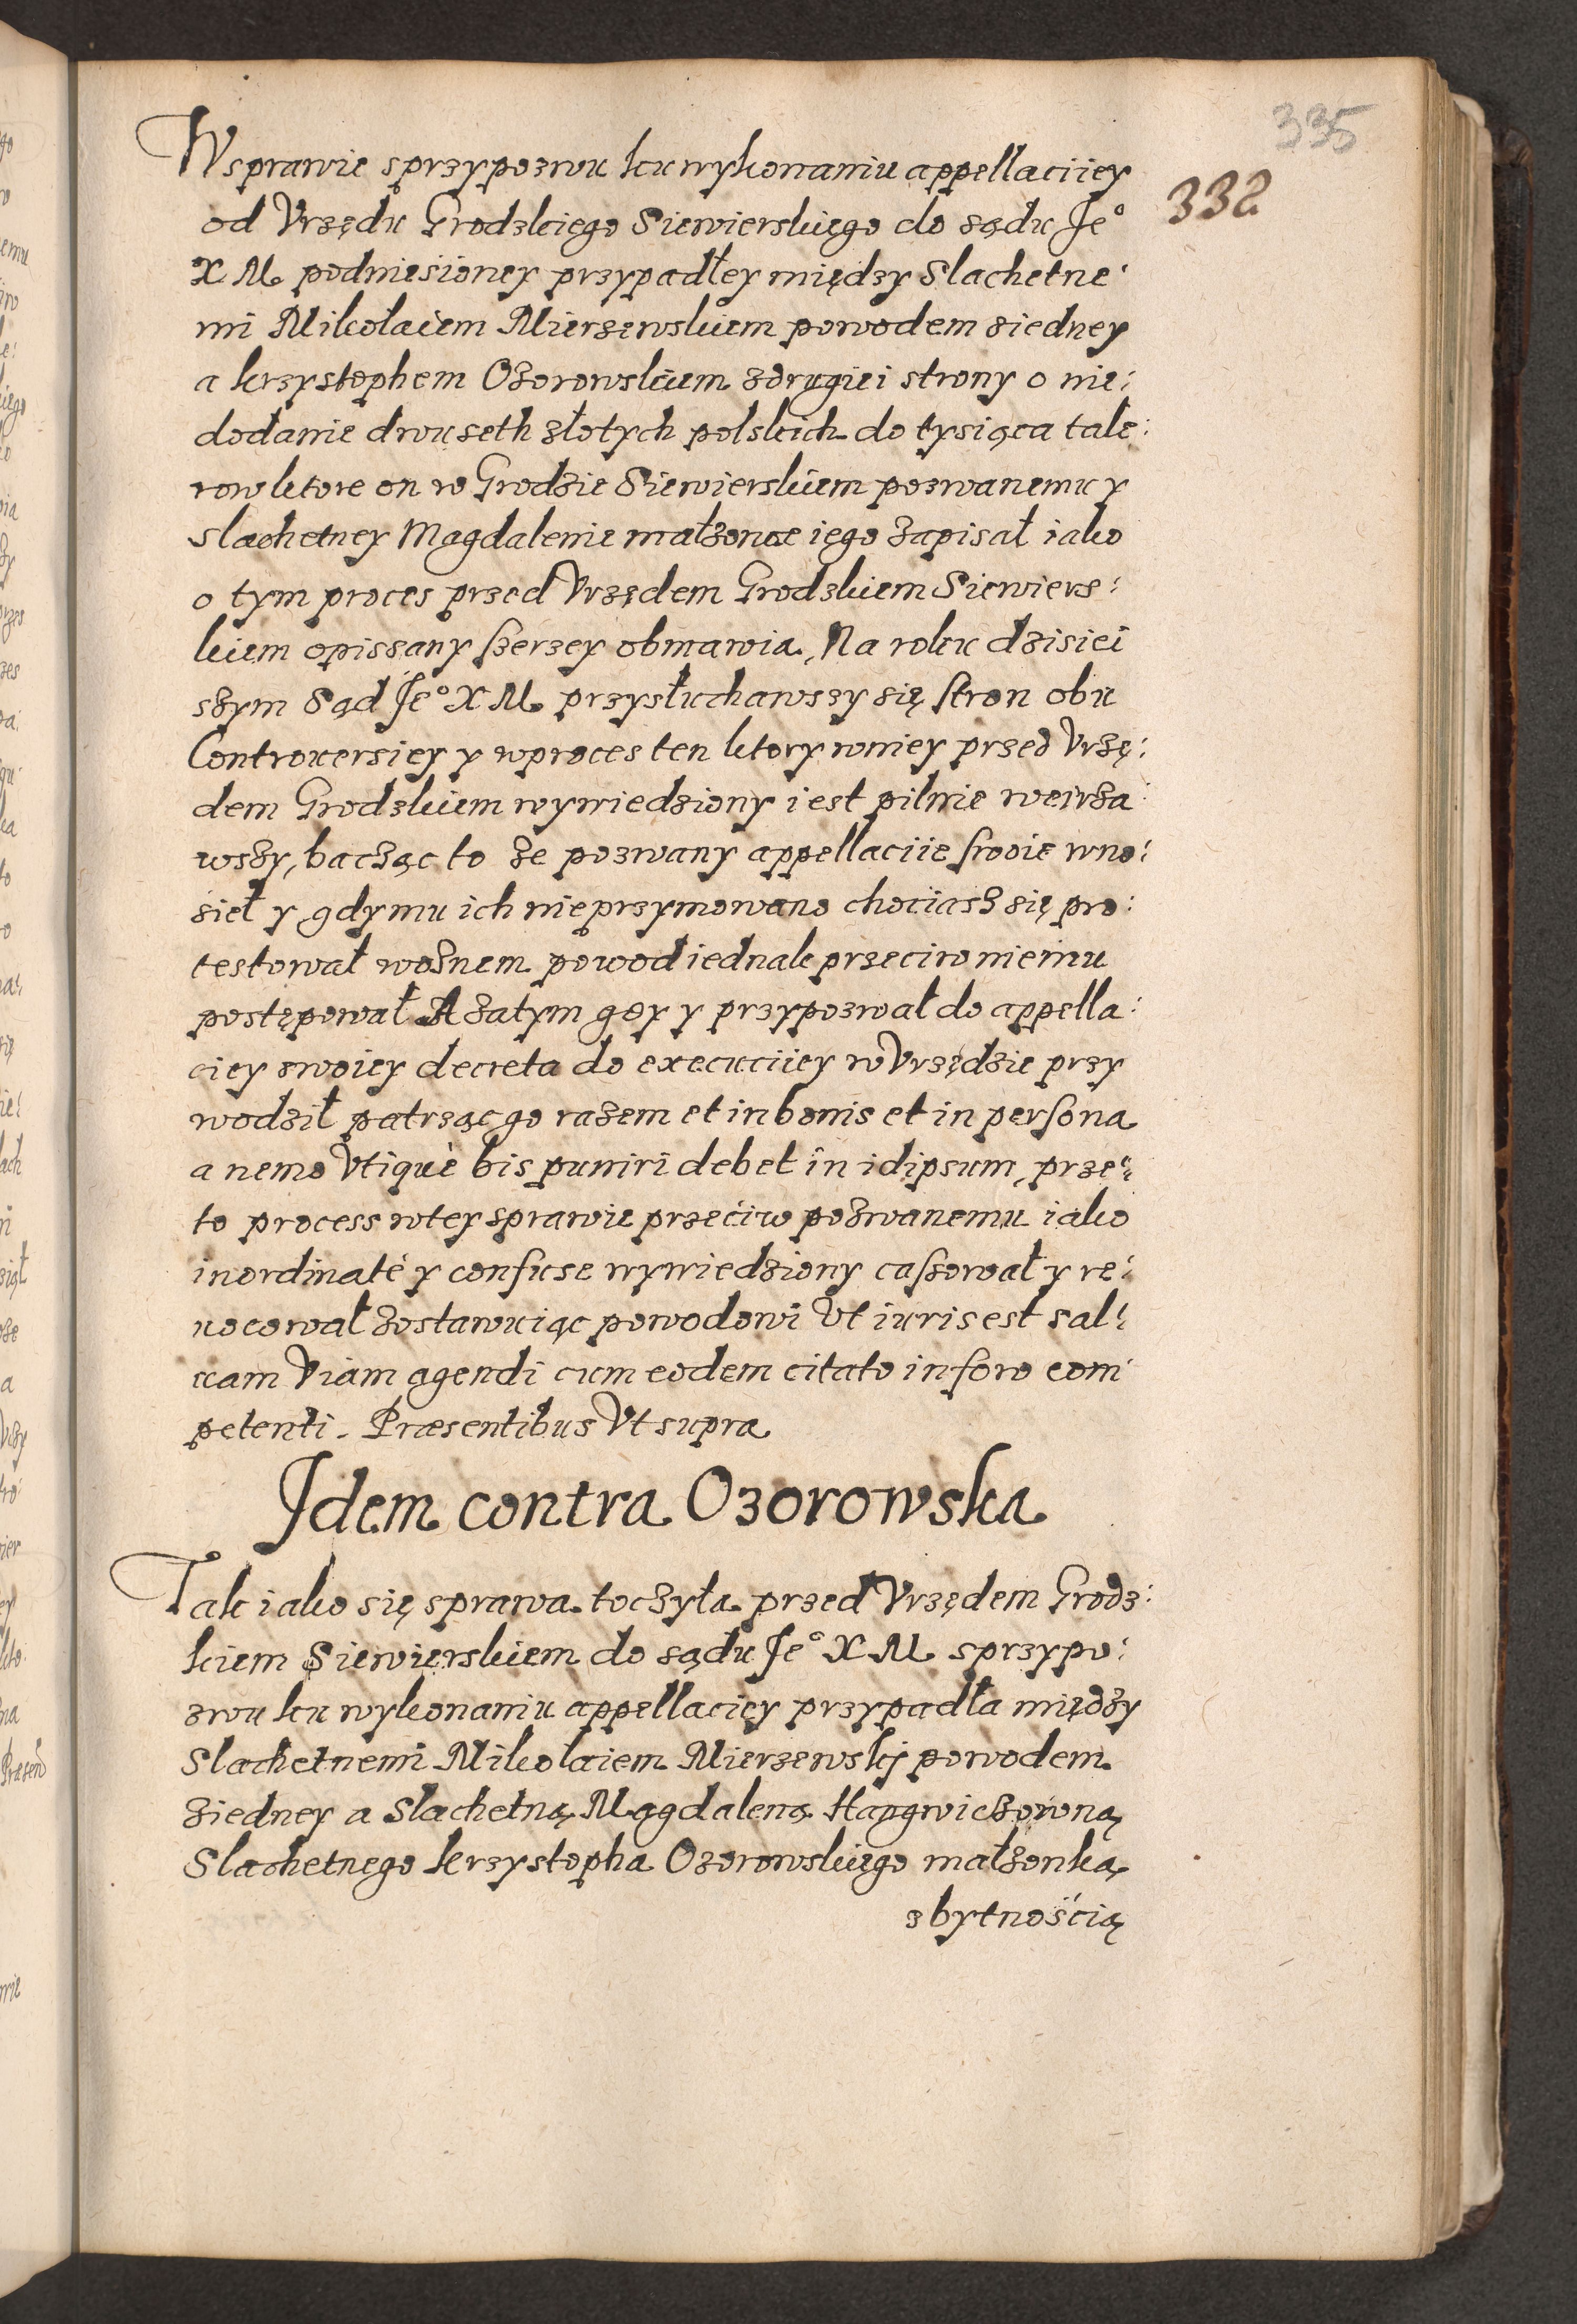 335
332
W sprawie s przypozwu ku wykonaniu appellaciiey
od Vrzędu Grodzkiego Siewierskiego do sądu Je°
X M podniesioney przypadłey między Slachetne:
mi Mikołaiem Mierzewskiem powodem ziedney
a krzystophem Ozorowskiem zdrugiei strony o nie:
dodanie dwu seth złotych polskich do tysiąca tale:
row ktore on w Grodzie Siewierskiem pozwanemu y
slachetney Magdalenie małzonce iego zapisał iako
o tym proces przed Vrzędem Grodzkiem Siewiers:
kiem opissany szerzey obmawia, Na roku dzisiei
szym Sąd Je° X M przysłuchawszy się stron obu
Controuersiey y wproces ten ktory wniey przed Vrzę:
dem Grodzkiem wywiedziony iest pilnie weirza:
wszy, bacząc to ze pozwany appellaciie swoie wno:
sieł y gdy mu ich nie przymowano chociasz się pro:
testował woznem powod iednak przeciw niemu
postępował A zatym gdy y przypozwał do appella:
ciey swoiey decreta do execuciiey w Vrzędzie przy
wodził patrząc go razem et in bonis et in persona
a nemo Vtique bis puniri debet in idipsum, prze:
to process wtey sprawie przeciw pozwanemu iako
inordinate y confuse wywiedziony cassował y re:
uocował zostawuiąc powodowi Vt iuris est sal:
uam Viam agendi cum eodem citato in foro com
petenti. Præsentibus Vt supra
Idem contra Ozorowska
Tak iako się sprawa toczyła przed Vrzędem Grodz:
kiem Siewierskiem do sądu Je° X M s przypo:
zwu ku wykonaniu appellaciey przypadła między
Slachetnemi Mikołaiem Mierzewskj powodem
ziedney a Slachetną Magdaleną Hapgwiczowną
Slachetnego krzystopha Ozorowskiego małzonką
zbytnością